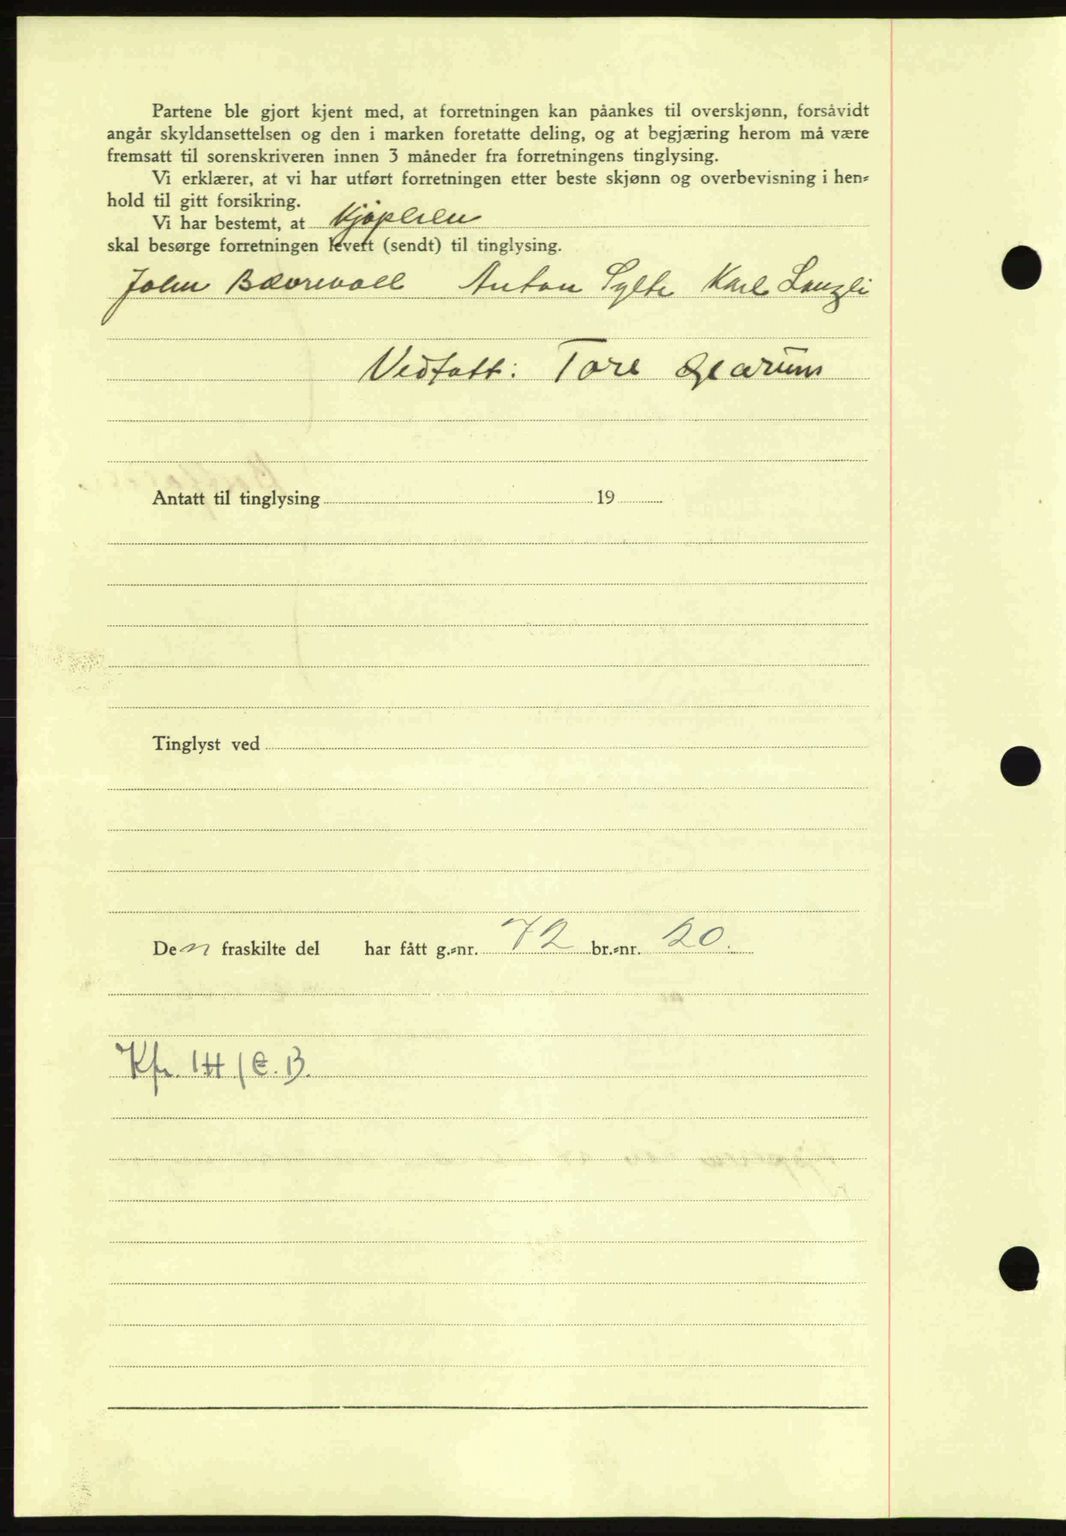 Partene ble gjort kjent med, at forretningen kan påankes til overskjønn, forsåvidt
angår skyldansettelsen og den i marken foretatte deling, og at begjæring herom må være
fremsatt til sorenskriveren innen 3 måneder fra forretningens tinglysing.
Vi erklærer, at vi har utført forretningen etter beste skjønn og overbevisning i hen=
hold til gitt forsikring.
Vi har bestemt, at kjøperen
skal besørge forretningen levert (sendt) til tinglysing.
John Bævrevoll Anton Sylte Karl Langli
Vedtatt: Tore
Antatt til tinglysing 19
Tinglyst ved
Den fraskilte del har fått g.=nr. 72 br.=nr. 20.
Kfr. IH/E.B.